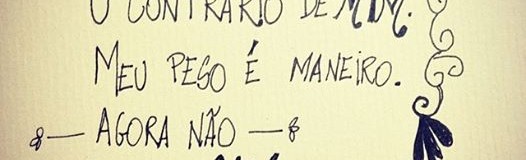 O CONTRÁRIO DE MIM.
MEU PESO É MANEIRO.
— AGORA NÃO —